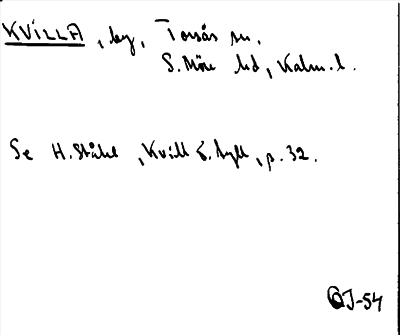 KVILLA, by, Torsås sn.
S. Möre hd, Kalm. l.
Se H. Ståhl, Kvill o. tyll, p. 32.
GJ-54